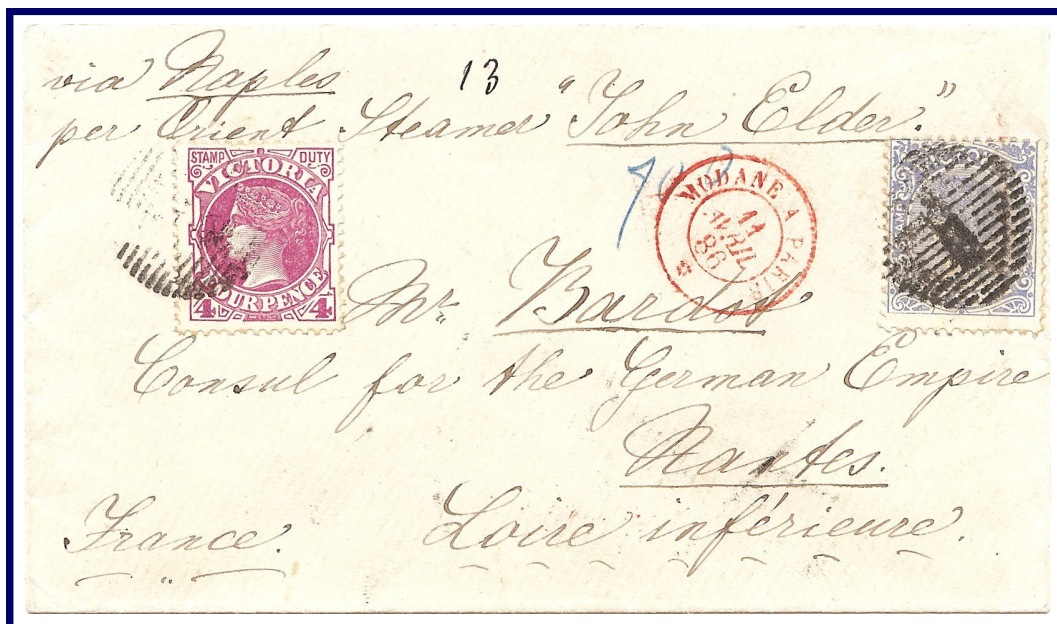 via Naples 13
per Orient Steamer "John Elder."
STAMP DUTY
VICTORIA
FOURPENCE
4 4
MODANE A PARIS
AVRIL
86
STAMP
Mr. Bardot
Consul for the German Empire
Nantes.
France. Loire inférieure.